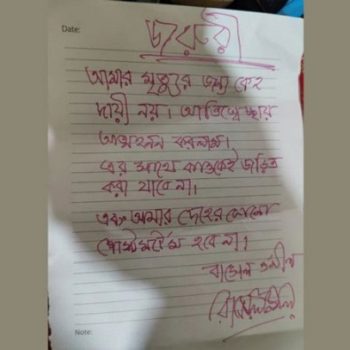 Date:
জরুরী
আমার মৃত্যুর জন্য কেহ
দায়ী নয়।
আত্মহনন করলাম।
এর সাথে কাউকেই জড়িত
করা যাবে না।
এবং আমার দেহের কোনো
পোস্টমর্টেম হবে না।
Note: